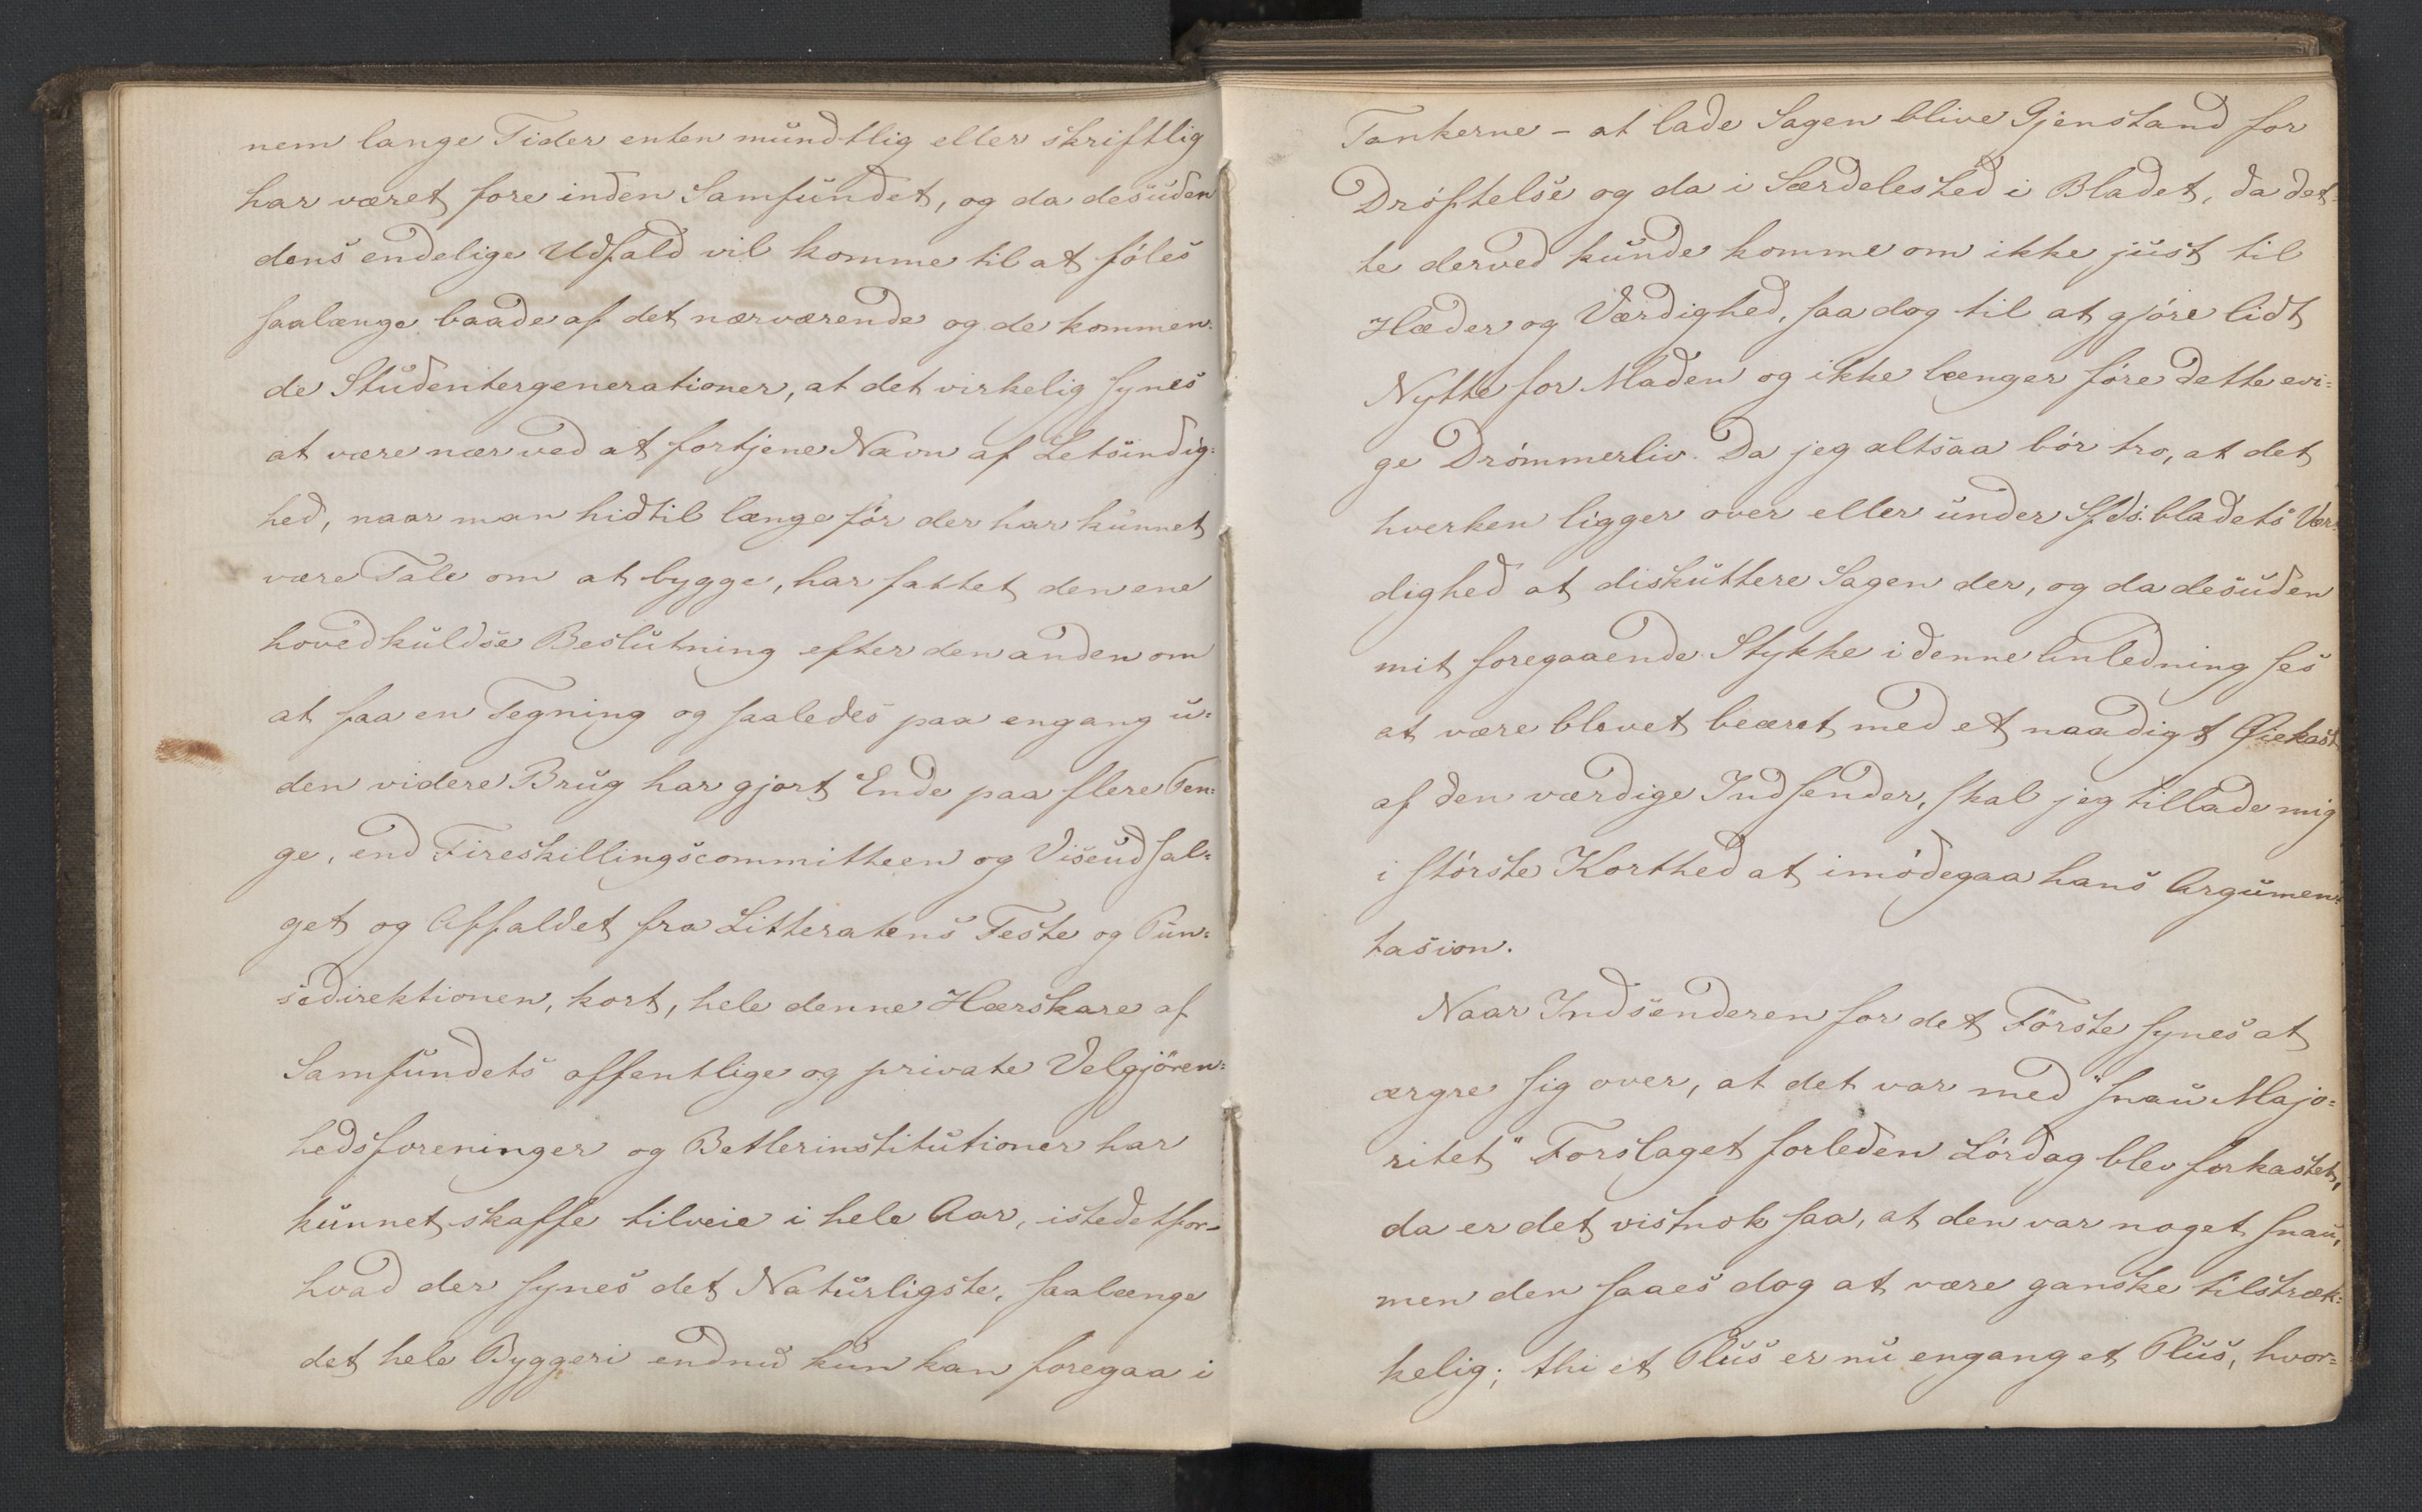 nem lange Tider enten mundtlig eller skriftlig
har været fore inden Samfundet, og da desuden
dens endelige Udfald vil komme til at føles
saalænge baade af det nærværende og de kommen-
de Studentergenerationer, at det virkelig synes
at være nær ved at fortjene Navn af Letsindig-
hed, naar man hidtil længe før der har kunnet
være Tale om at bygge, har fattet den ene
hovedkuldse Beslutning efter den anden om
at faa en Tegning og saaledes paa engang u-
den videre Brug har gjort Ende paa flere Pen-
ge, end Fireskillingscommitteen og Viseudsal-
get og Affaldet fra Litteratens Feste og Pun-
sedirektionen, kort, hele denne Hærskare af
Samfundets offentlige og private Velgjören-
hedsforeninger og Betlerinstitutioner har
kunnet skaffe tilveie i hele Aar, istedetfor-
hvad der synes det Naturligste, saalænge
det hele Byggeri endnu kun kan foregaa i
Tankerne - at lade Sagen blive Gjenstand for
Drøftelse og da i Særdeleshed i Bladet, da det-
te derved kunde komme om ikke just til
Hæder og Værdighed, saa dog til at gjøre lidt
Nytte for Maden og ikke længer føre dette evi-
ge Drømmerliv. Da jeg altsaa bør tro, at det
hverken ligger over eller under Sfds. bladets Vær-
dighed at diskuttere Sagen der, og da desuden
mit foregaaende Stykke i denne Anledning ses
at være blevet beæret med et naadigt Øiekast
af den værdige Indsender, skal jeg tillade mig
i største Korthed at imødegaa hans Argumen-
tasion.
Naar Indsenderen for det Første synes at
ærgre sig over, at det var med "snau Majo-
ritet" Forslaget forleden Lørdag blev forkastet,
da er det vistnok saa, at den var noget snau,
men den saaes dog at være ganske tilstræk-
kelig; thi et Plus er nu engang et Plus, hvor-